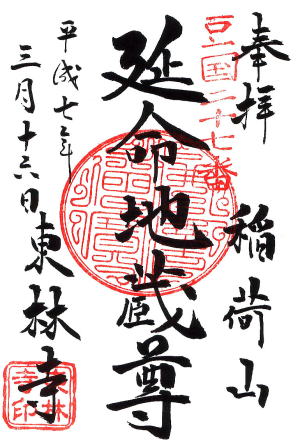 奉拝
豆国二十七番
稲荷山
延命地蔵尊
平成七年
三月十六日
東林寺
東林
寺印